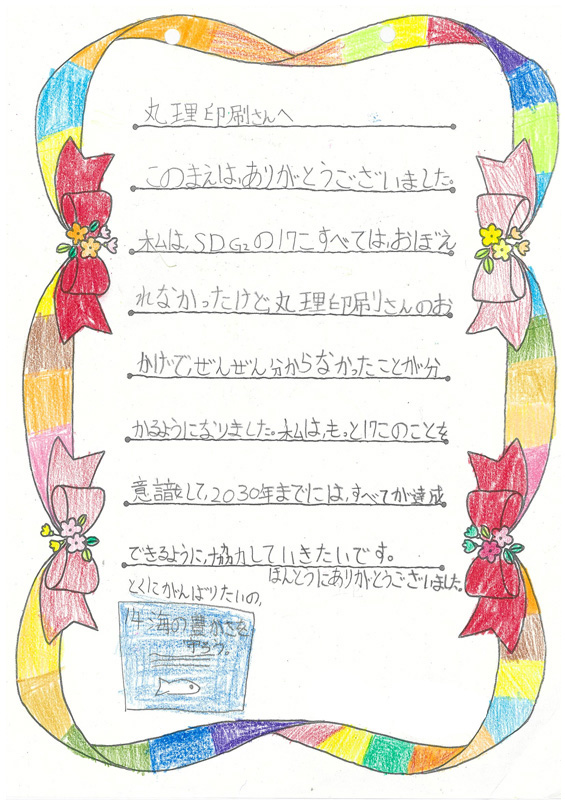 丸理印刷さんへ
このまえは,ありがとうございました。
私は,SDGsの17こすべては,おぼえ
れなかったけど,丸理印刷さんのお
かげで,ぜんぜん分からなかったことが分
かるようになりました。私は,もっと17このことを
意識して,2030年までには,すべてが達成
できるように,協力していきたいです。
ほんとうにありがとうございました。
とくにがんばりたいの,
14海の豊かさを
守ろう。